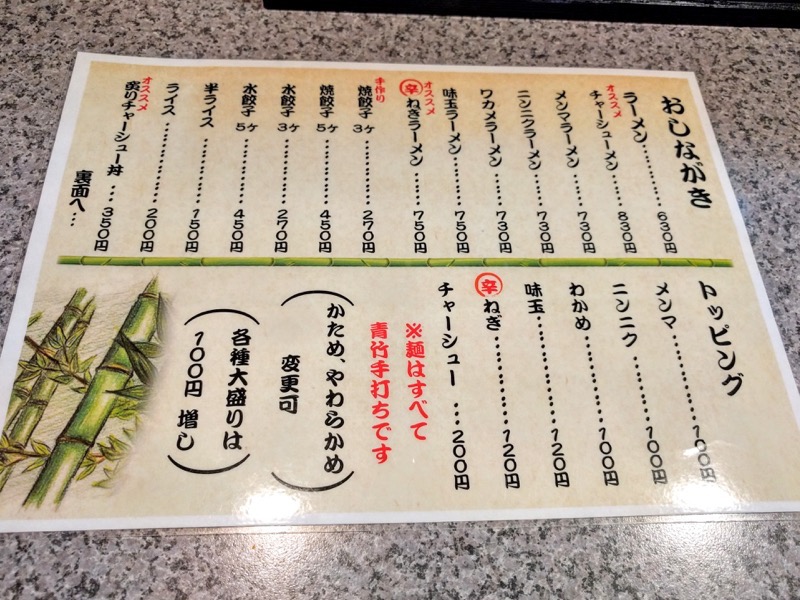 おしながき
ラーメン…………630円
オススメ
チャーシューメン……830円
メンマラーメン………730円
ニンニクラーメン……730円
ワカメラーメン………730円
味玉ラーメン…………750円
オススメ
辛ねぎラーメン………750円
手作り
焼餃子 3ケ………270円
焼餃子 5ケ………450円
水餃子 3ケ………270円
水餃子 5ケ………450円
半ライス…………150円
ライス……………200円
オススメ
炙りチャーシュー丼…350円
裏面へ…
トッピング
メンマ……………100円
ニンニク…………100円
わかめ……………100円
味玉………………120円
辛ねぎ……………120円
チャーシュー…200円
※麺はすべて
青竹手打ちです
(かため、やわらかめ
変更可)
(各種大盛りは
100円 増し)